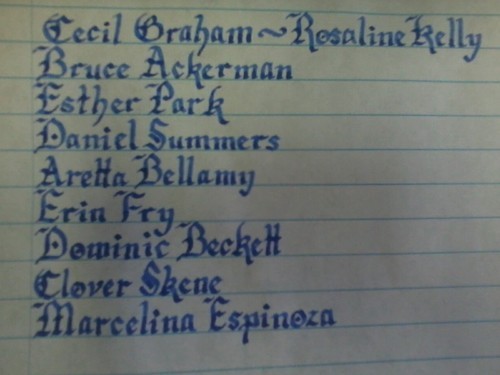 Cecil Graham ~ Rosaline Kelly
Bruce Ackerman
Esther Park
Daniel Summers
Aretta Bellamy
Erin Fry
Dominic Beckett
Clover Skene
Marcelina Espinoza